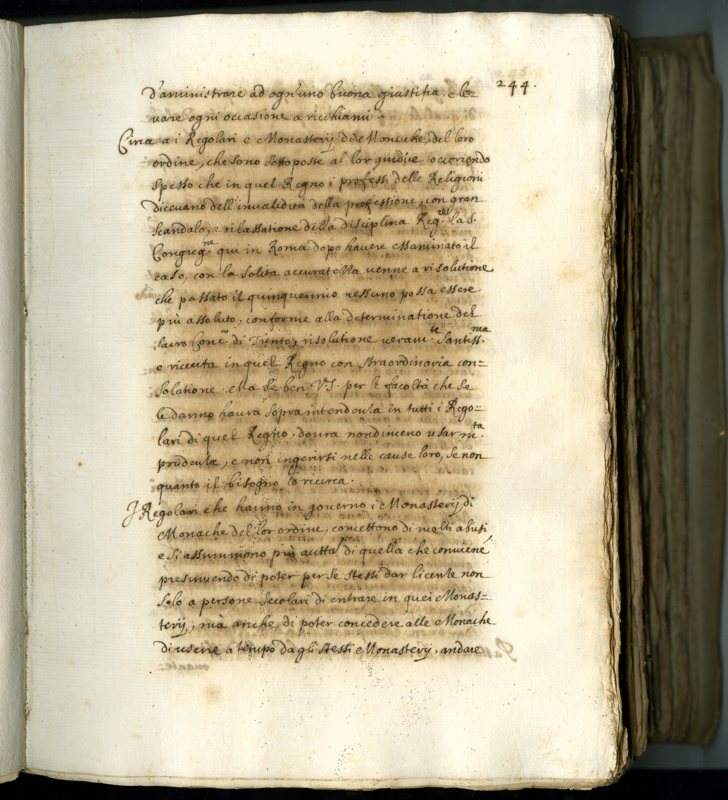 244.
d'aministrare ad ogn'uno buona giustitia, e le-
vare ogni occasione a richiami.
Circa a i Regolari e Monasterij di Monache del loro
ordine, che sono sottoposte al lor guidice occorrendo
spesso che in quel Regno i professi delle Religioni
dicevano dell'invalidità della professione, con gran
scandalo, e rilassatione della disciplina Reg.re la S.
Congreg.ne qui in Roma dopo havere essaminato il
caso, con la solita accuratezza venne a risolutione
che passato il quinquennio nessuno possa essere
più assoluto, conforme alla determinatione del
sacro Conc.o di Trento, risolutione veram.te Santiss.ma
e ricevuta in quel Regno con straordinaria con=
solatione. Ma se ben V.S. per le facoltà che se
le danno haurà sopraintendenza in tutti i Rego=
lari di quel Regno, dourà nondimeno usar m.ta
prudenza, e non ingerirsi nelle cause loro, se non
quanto il bisogno lo ricerca.
I Regolari che hanno in governo i Monasterij di
Monache del lor ordine, comettono di molti abusi,
e si assummono più autta' di quella che conviene
presumendo di poter per se stessi dar licenze non
solo a persone secolari di entrare in quei Monas=
terij, mà anche di poter concedere alle Monache
di uscire a tempo dagli stessi Monasterij, andare